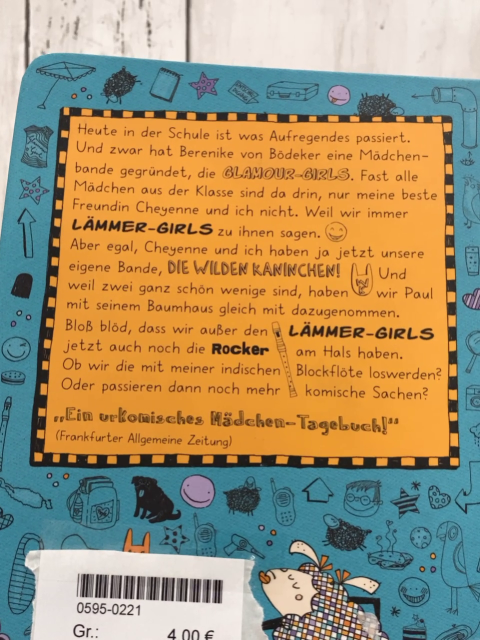 Heute in der Schule ist was Aufregendes passiert.
Und zwar hat Berenike von Bödeker eine Mädchen-
bande gegründet, die GLAMOUR-GIRLS. Fast alle
Mädchen aus der Klasse sind da drin, nur meine beste
Freundin Cheyenne und ich nicht. Weil wir immer
LÄMMER-GIRLS zu ihnen sagen.
Aber egal, Cheyenne und ich haben ja jetzt unsere
eigene Bande, DIE WILDEN KANINCHEN! Und
weil zwei ganz schön wenige sind, haben wir Paul
mit seinem Baumhaus gleich mit dazugenommen.
Bloß blöd, dass wir außer den LÄMMER-GIRLS
jetzt auch noch die Rocker am Hals haben.
Ob wir die mit meiner indischen Blockflöte loswerden?
Oder passieren dann noch mehr komische Sachen?
„Ein urkomisches Mädchen-Tagebuch!“
(Frankfurter Allgemeine Zeitung)
0595-0221
Gr.: 4,00 €